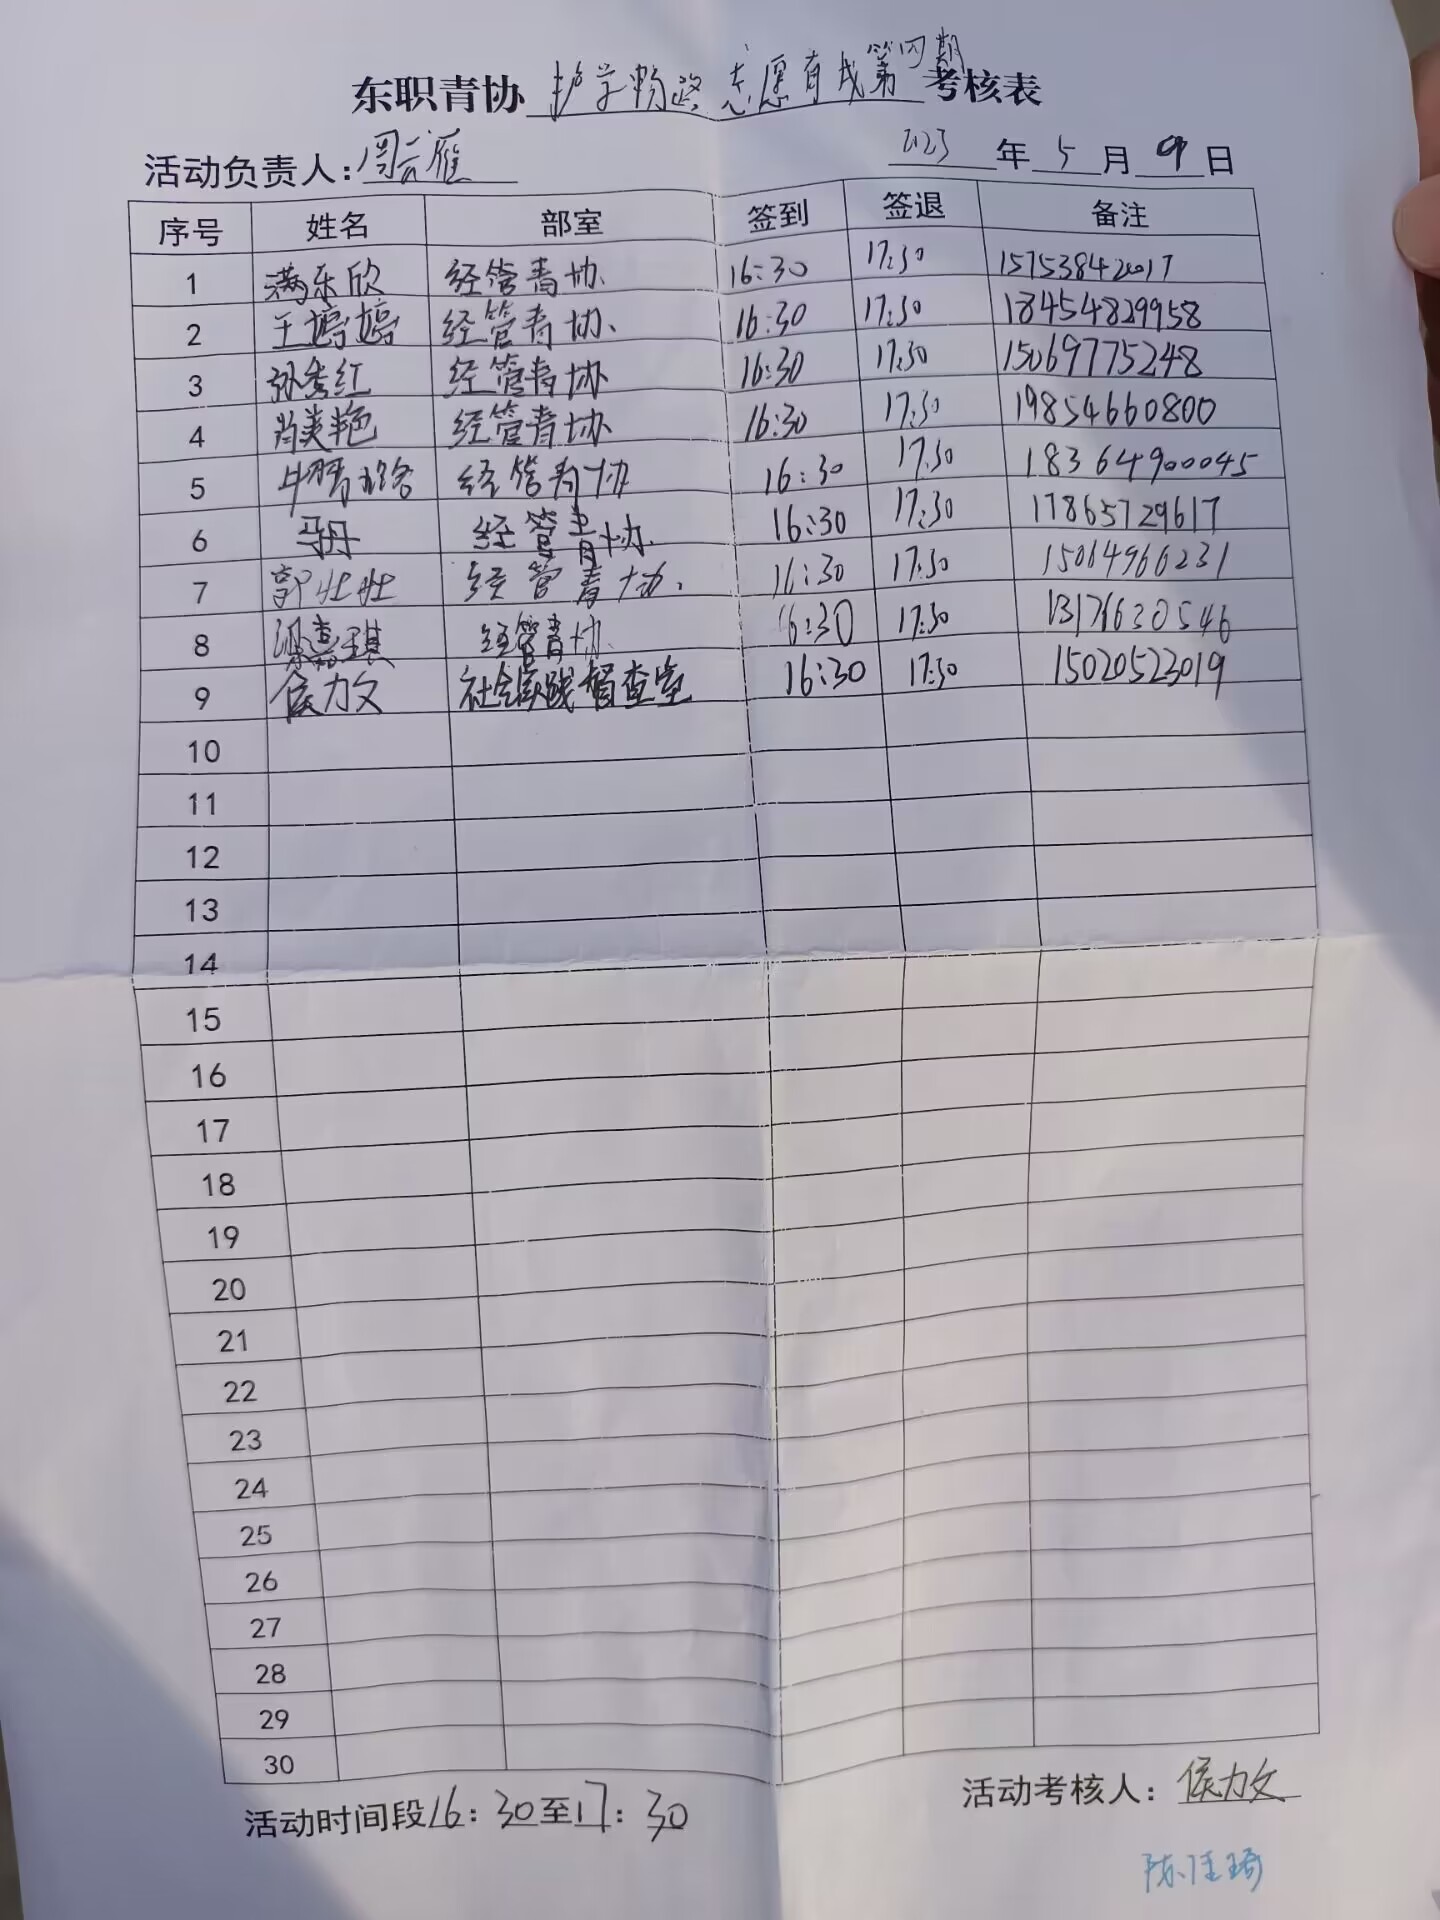 东职青协 护学畅路 志愿有我第四期 考核表
活动负责人：周云雁 2023 年 5 月 9 日
序号 姓名 部室 签到 签退 备注
1 满乐欣 经管青协 16:30 17:30 15753842017
2 王婷婷 经管青协 16:30 17:30 18454829958
3 孙秀红 经管青协 16:30 17:30 15069775248
4 肖美艳 经管青协 16:30 17:30 19854660800
5 经管青协 16:30 17:30 18364900045
6 马丹 经管青协 16:30 17:30 17865729617
7 郭壮壮 经管青协 16:30 17:30 15064966231
8 梁嘉琪 经管青协 16:30 17:30 13176630546
9 侯力文 社会实践督查室 16:30 17:30 15020523019
10
11
12
13
14
15
16
17
18
19
20
21
22
23
24
25
26
27
28
29
30
活动时间段16：30至17：30 活动考核人：侯力文
陈佳琦